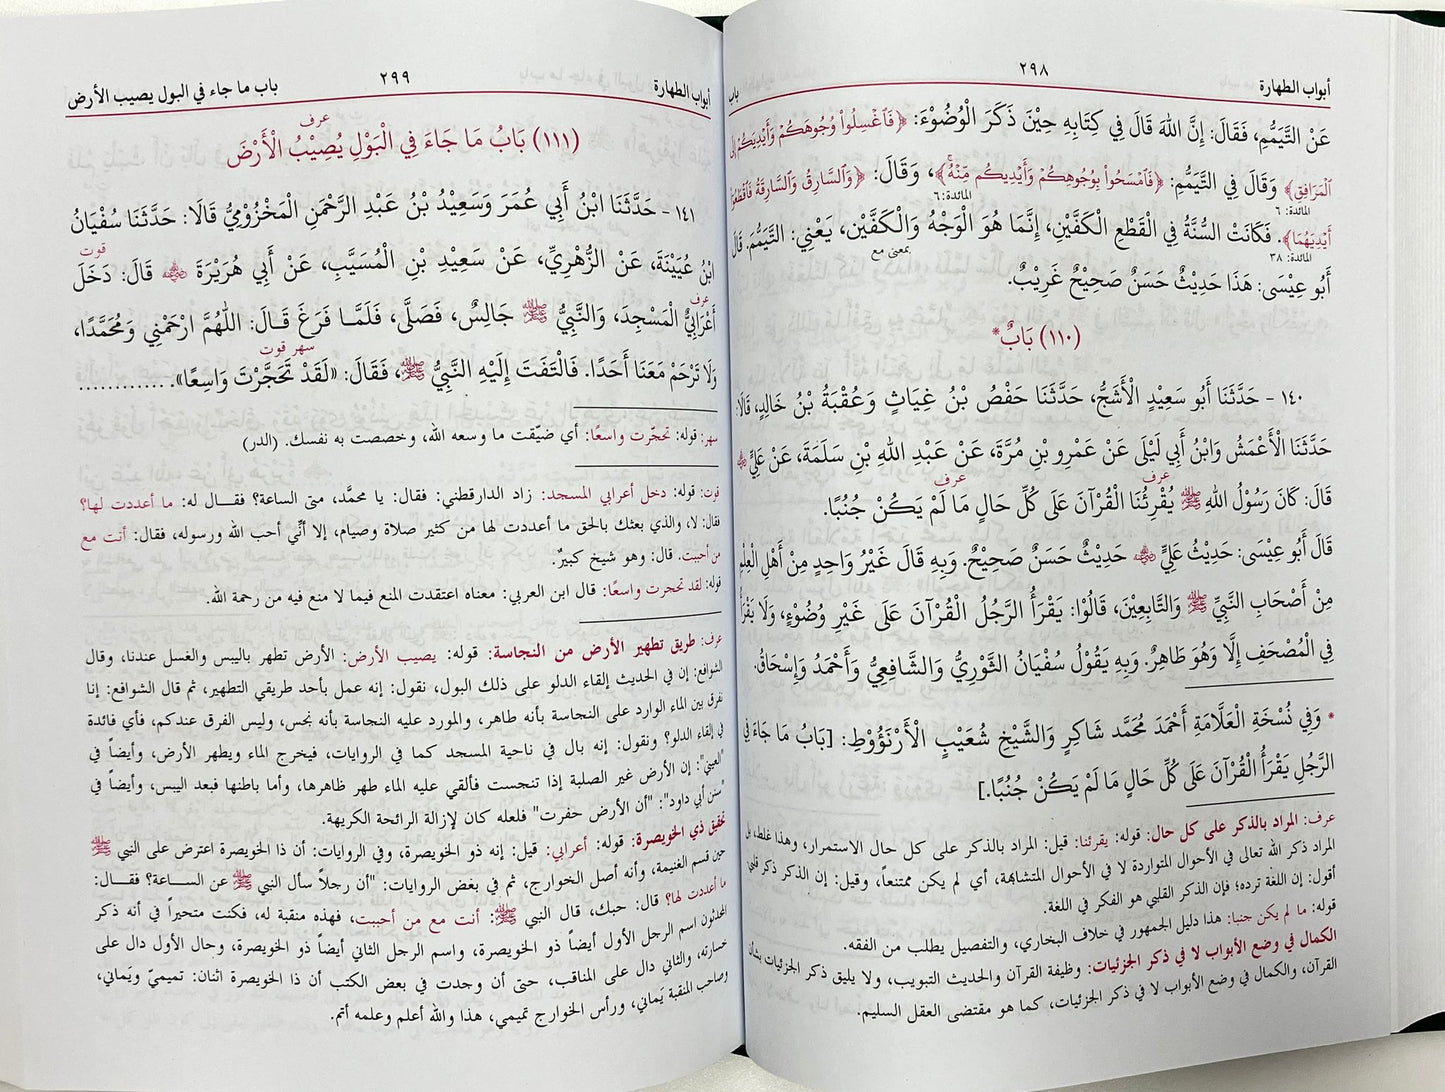 أبواب الطهارة ٢٩٨ باب
عَنْ التَّيَمُّمِ، فَقَالَ: إِنَّ اللهَ قَالَ فِي كِتَابِهِ حِيْنَ ذَكَرَ الْوُضُوْءَ: ﴿فَٱغۡسِلُواْ وُجُوهَكُمۡ وَأَيۡدِيَكُمۡ إِلَى
ٱلۡمَرَافِقِ﴾ وَقَالَ فِي التَّيَمُّمِ: ﴿فَٱمۡسَحُواْ بِوُجُوهِكُمۡ وَأَيۡدِيكُم مِّنۡهُۚ﴾، وَقَالَ: ﴿وَٱلسَّارِقُ وَٱلسَّارِقَةُ فَٱقۡطَعُوٓاْ
المائدة: ٦ المائدة: ٦
أَيۡدِيَهُمَا﴾. فَكَانَتْ السُّنَّةُ فِي الْقَطْعِ الْكَفَّيْنِ، إِنَّمَا هُوَ الْوَجْهُ وَالْكَفَّيْنِ، يَعْنِي: التَّيَمُّمَ. قَالَ
المائدة: ٣٨ بمعنى مع
أَبُو عِيْسَى: هَذَا حَدِيْثٌ حَسَنٌ صَحِيْحٌ غَرِيْبٌ.
(١١٠) بَابٌ*
١٤٠ - حَدَّثَنَا أَبُو سَعِيْدٍ الْأَشَجُّ، حَدَّثَنَا حَفْصُ بْنُ غِيَاثٍ وَعُقْبَةُ بْنُ خَالِدٍ، قَالَا:
حَدَّثَنَا الْأَعْمَشُ وَابْنُ أَبِي لَيْلَى عَنْ عَمْرِو بْنِ مُرَّةَ، عَنْ عَبْدِ اللهِ بْنِ سَلَمَةَ، عَنْ عَلِيٍّ ﵁
عرف عرف
قَالَ: كَانَ رَسُوْلُ اللهِ ﷺ يُقْرِئُنَا الْقُرْآنَ عَلَى كُلِّ حَالٍ مَا لَمْ يَكُنْ جُنُبًا.
قَالَ أَبُو عِيْسَى: حَدِيْثُ عَلِيٍّ ﵁ حَدِيْثٌ حَسَنٌ صَحِيْحٌ. وَبِهِ قَالَ غَيْرُ وَاحِدٍ مِنْ أَهْلِ الْعِلْمِ
مِنْ أَصْحَابِ النَّبِيِّ ﷺ وَالتَّابِعِيْنَ، قَالُوْا: يَقْرَأُ الرَّجُلُ الْقُرْآنَ عَلَى غَيْرِ وُضُوْءٍ، وَلَا يَقْرَأُ
فِي الْمُصْحَفِ إِلَّا وَهُوَ طَاهِرٌ. وَبِهِ يَقُوْلُ سُفْيَانُ الثَّوْرِيُّ وَالشَّافِعِيُّ وَأَحْمَدُ وَإِسْحَاقُ.
* وَفِي نُسْخَةِ الْعَلَّامَةِ أَحْمَدَ مُحَمَّد شَاكِرٍ وَالشَّيْخِ شُعَيْبٍ الْأَرْنَؤُوْطِ: [بَابُ مَا جَاءَ فِي
الرَّجُلِ يَقْرَأُ الْقُرْآنَ عَلَى كُلِّ حَالٍ مَا لَمْ يَكُنْ جُنُبًا.]
عرف: المراد بالذكر على كل حال: قوله: يقرئنا: قيل: المراد بالذكر على كل حال الاستمرار، وهذا غلط، بل
المراد ذكر الله تعالى في الأحوال المتواردة لا في الأحوال المتشابهة، أي لم يكن ممتنعاً، وقيل: إن الذكر ذكر قلبي
أقول: إن اللغة ترده؛ فإن الذكر القلبي هو الفكر في اللغة.
قوله: ما لم يكن جنبا: هذا دليل الجمهور في خلاف البخاري، والتفصيل يطلب من الفقه.
الكمال في وضع الأبواب لا في ذكر الجزئيات: وظيفة القرآن والحديث التبويب، ولا يليق ذكر الجزئيات بشأن
القرآن، والكمال في وضع الأبواب لا في ذكر الجزئيات، كما هو مقتضى العقل السليم.
أبواب الطهارة ٢٩٩ باب ما جاء في البول يصيب الأرض
عرف
(١١١) بَابُ مَا جَاءَ فِي الْبَوْلِ يُصِيْبُ الْأَرْضَ
١٤١ - حَدَّثَنَا ابْنُ أَبِي عُمَرَ وَسَعِيْدُ بْنُ عَبْدِ الرَّحْمَنِ الْمَخْزُوْمِيُّ قَالَا: حَدَّثَنَا سُفْيَانُ
قوت
ابْنُ عُيَيْنَةَ، عَنْ الزُّهْرِيِّ، عَنْ سَعِيْدِ بْنِ الْمُسَيَّبِ، عَنْ أَبِي هُرَيْرَةَ ﵁ قَالَ: دَخَلَ
عرف
أَعْرَابِيٌّ الْمَسْجِدَ، وَالنَّبِيُّ ﷺ جَالِسٌ، فَصَلَّى، فَلَمَّا فَرَغَ قَالَ: اللّٰهُمَّ ارْحَمْنِي وَمُحَمَّدًا،
سهر قوت
وَلَا تَرْحَمْ مَعَنَا أَحَدًا. فَالْتَفَتَ إِلَيْهِ النَّبِيُّ ﷺ، فَقَالَ: «لَقَدْ تَحَجَّرْتَ وَاسِعًا»..............
سهر: قوله: تحجّرت واسعًا: أي ضيّقت ما وسعه الله، وخصصت به نفسك. (الدر)
قوت: قوله: دخل أعرابي المسجد: زاد الدارقطني: فقال: يا محمَّد، متى الساعة؟ فقال له: ما أعددت لها؟
فقال: لا، والذي بعثك بالحق ما أعددت لها من كثير صلاة وصيام، إلا أنّي أحب الله ورسوله، فقال: أنت مع
من أحببت. قال: وهو شيخ كبيرٌ.
قوله: لقد تحجرت واسعًا: قال ابن العربي: معناه اعتقدت المنع فيما لا منع فيه من رحمة الله.
عرف: طريق تطهير الأرض من النجاسة: قوله: يصيب الأرض: الأرض تطهر باليبس والغسل عندنا، وقال
الشوافع: إن في الحديث إلقاء الدلو على ذلك البول، نقول: إنه عمل بأحد طريقي التطهير، ثم قال الشوافع: إنا
نفرق بين الماء الوارد على النجاسة بأنه طاهر، والمورد عليه النجاسة بأنه نجس، وليس الفرق عندكم، فأي فائدة
في إلقاء الدلو؟ ونقول: إنه بال في ناحية المسجد كما في الروايات، فيخرج الماء ويطهر الأرض، وأيضاً في
"العيني": إن الأرض غير الصلبة إذا تنجست فألقي عليه الماء طهر ظاهرها، وأما باطنها فبعد اليبس، وأيضاً في
"سنن أبي داود": "أن الأرض حفرت" فلعله كان لإزالة الرائحة الكريهة.
تحقيق ذي الخويصرة: قوله: أعرابي: قيل: إنه ذو الخويصرة، وفي الروايات: أن ذا الخويصرة اعترض على النبي ﷺ
حين قسم الغنيمة، وأنه أصل الخوارج، ثم في بعض الروايات: "أن رجلاً سأل النبي ﷺ عن الساعة؟ فقال:
ما أعددت لها؟ قال: حبك، قال النبي ﷺ: أنت مع من أحببت، فهذه منقبة له، فكنت متحيراً في أنه ذكر
المحدثون اسم الرجل الأول أيضاً ذو الخويصرة، واسم الرجل الثاني أيضاً ذو الخويصرة، وحال الأول دال على
خسارته، والثاني دال على المناقب، حتى أن وجدت في بعض الكتب أن ذا الخويصرة اثنان: تميميّ ويَماني،
وصاحب المنقبة يَماني، ورأس الخوارج تميمي، هذا والله أعلم وعلمه أتم.